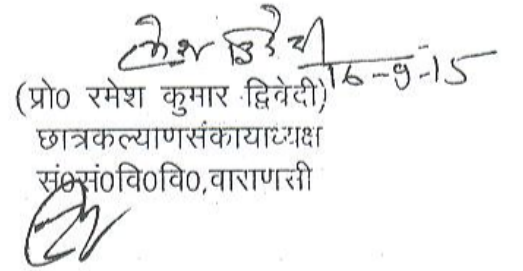 रमेश द्विवेदी
16-9-15
(प्रो0 रमेश कुमार द्विवेदी)
छात्रकल्याणसंकायाध्यक्ष
सं0सं0वि0वि0,वाराणसी